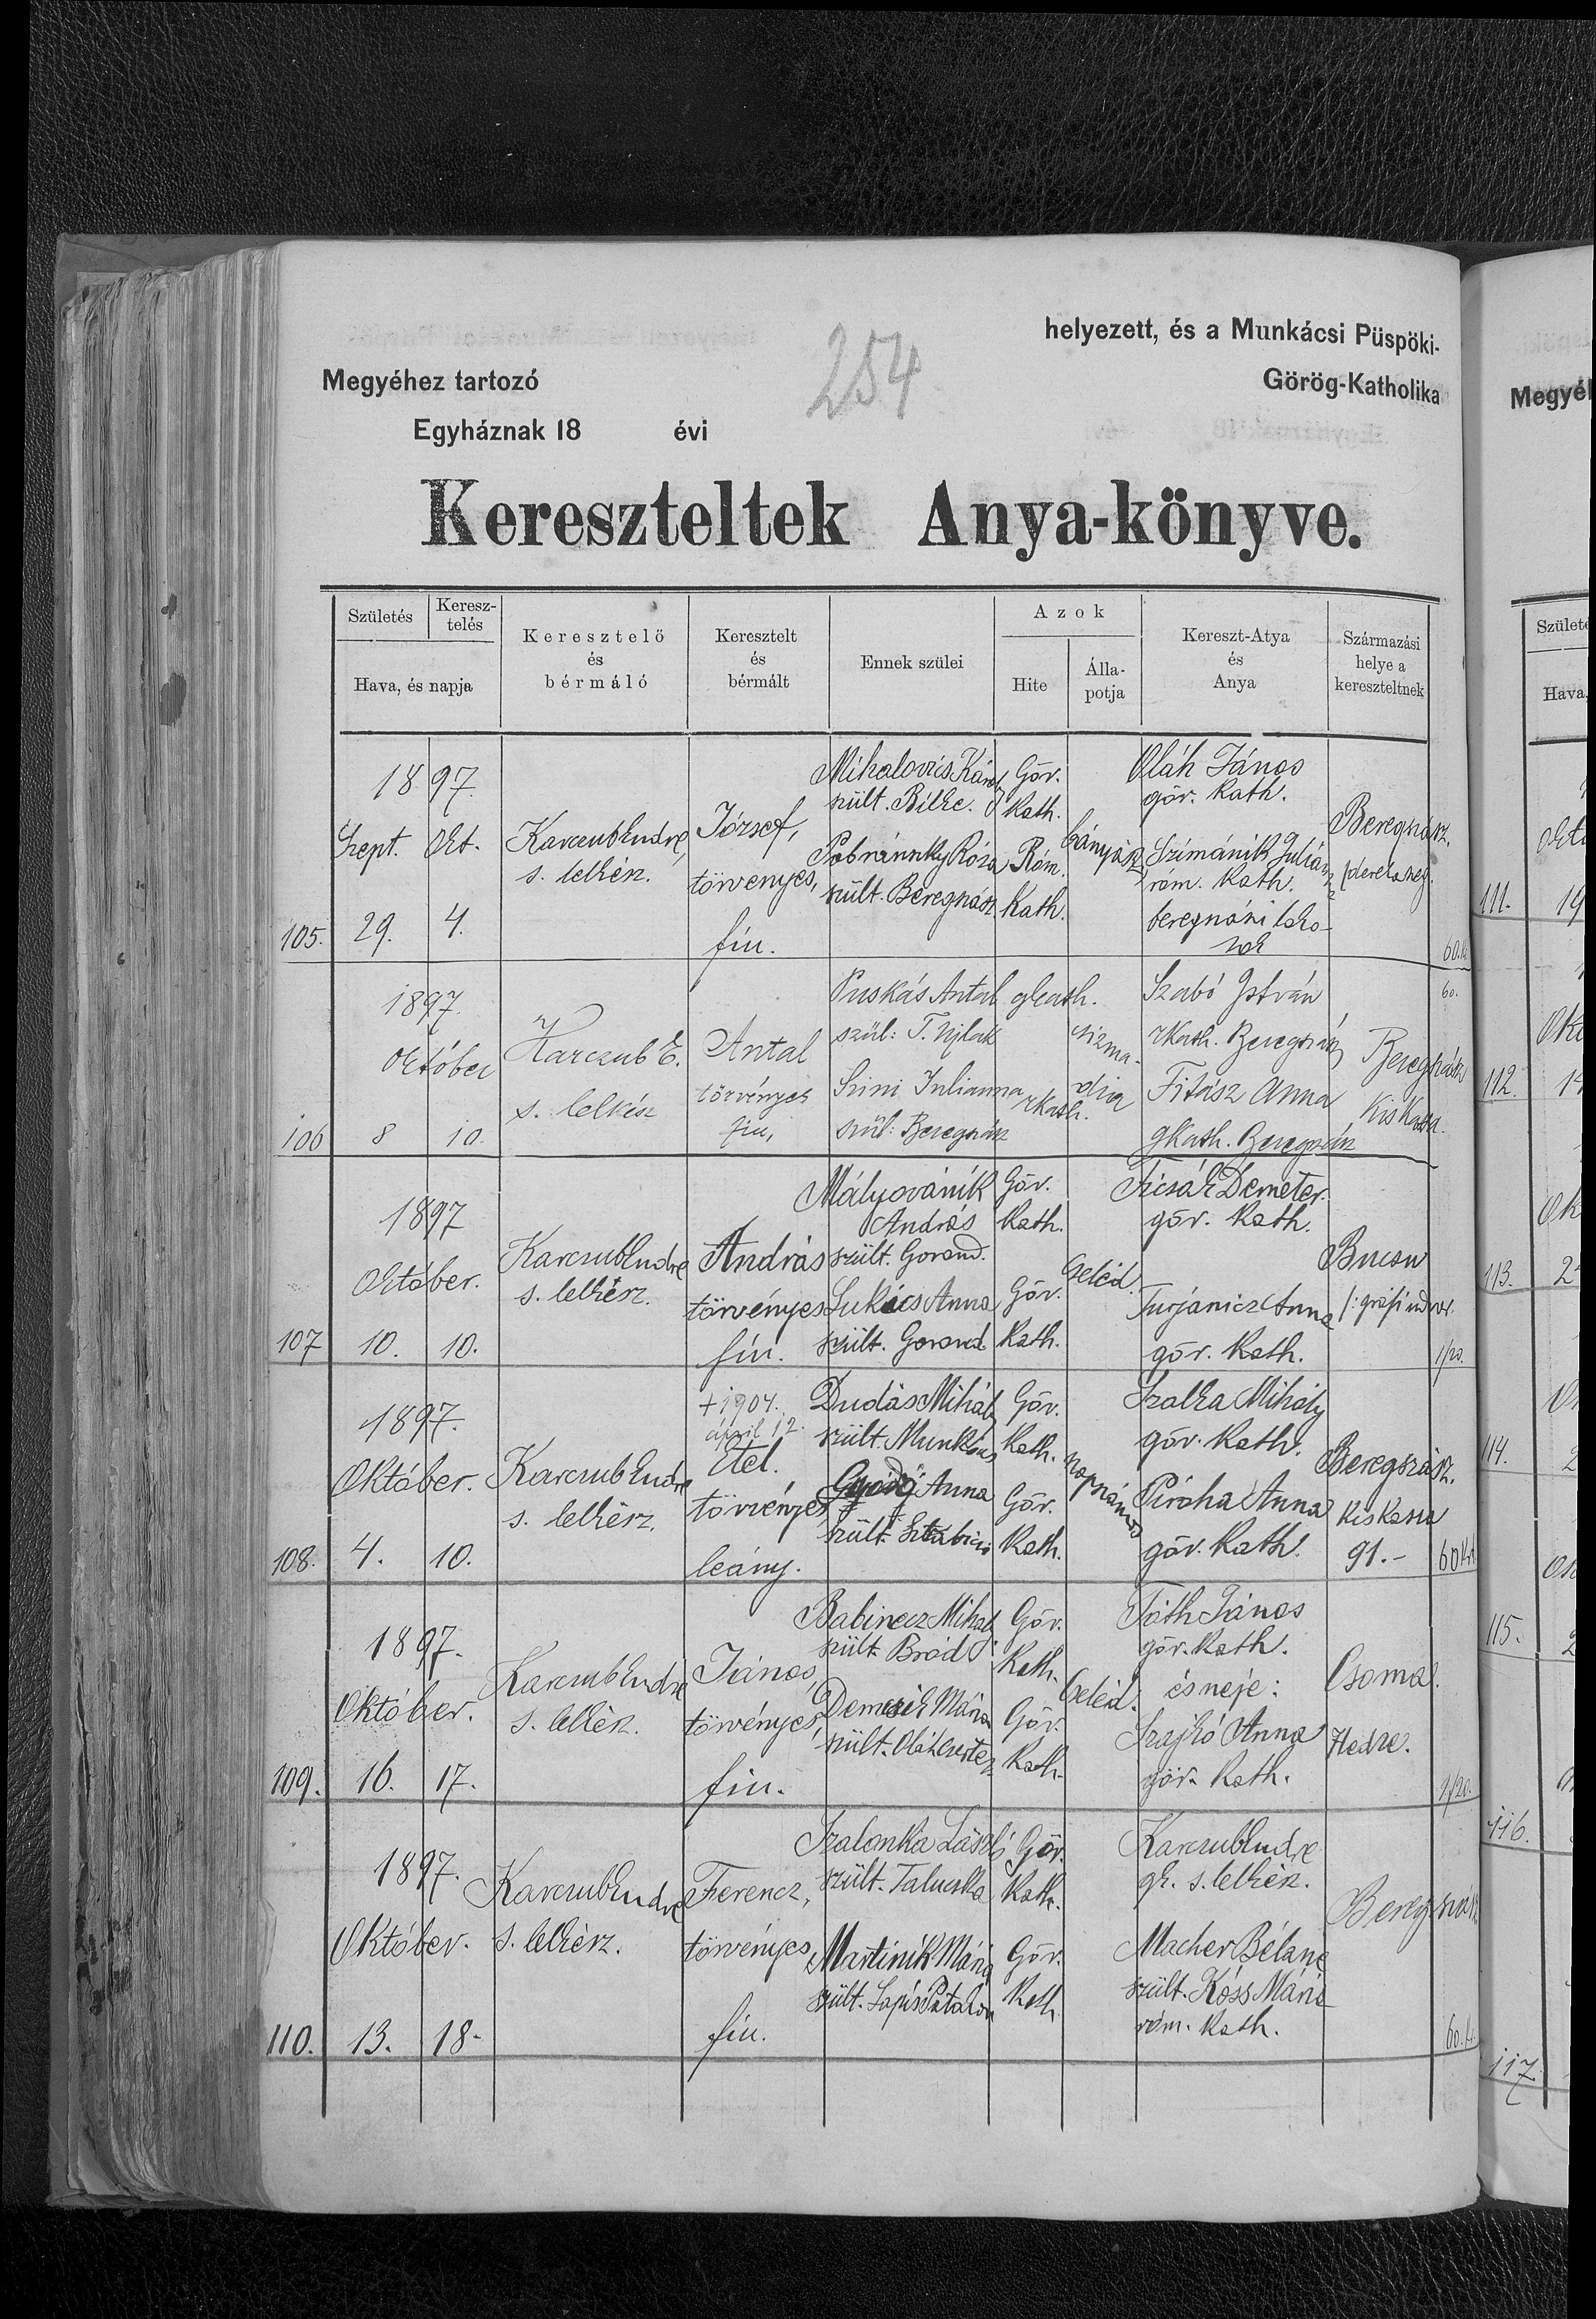 254
helyezett, és a Munkácsi Püspöki-
Megyéhez tartozó
Görög-Katholika
Egyháznak 18 évi
Kereszteltek Anya-könyve.
Születés
Keresz-
telés
Hava, és napja
Keresztelő
és
bérmáló
Keresztelt
és
bérmált
Ennek szülei
Azok
Hite
Álla-
potja
Kereszt-Atya
és
Anya
Származási
helye a
kereszteltnek
105.
1897
Szept. Okt.
29. 4.
Karczub Endre,
s. lelkész.
József,
törvenyes,
fiu.
Mihalovics Károly
szült. Bilke.
Róza
szült. Beregszász
Göv.
Kath.
Róm.
Kath.
bányász
Oláh János
göv. Kath.
Szimánik Julián
róm. Kath.
beregszászi lako-
sok
Beregszász.
60.
106
1897.
Október
8 10.
Karczub E.
s. lelkész
Antal
törvényes
fiu,
Puskás Antal
szül: T. Ujlak
Szini Julianna
szül: Beregszász
gkath.
rkath.
csizma-
dia
Szabó István
rkath. Beregszász
Fitász Anna
gkath. Beregszász
Beregszász
Kiskassa.
60.
107
1897
Október.
10. 10.
Karczub Endre
s. lelkész.
András
törvényes
fiu.
Mályovánik
András
szült. Gorond.
Lukács Anna
szült. Gorond
Göv.
Kath.
Göv.
Kath.
Cseléd.
Ficsák Demeter.
göv. Kath.
Turjanicz Anna
göv. Kath.
Bucsu
/: grófi udvar.
1/20.
108.
1897.
Október.
4. 10.
Karczub Endre
s. lelkész.
+ 1904.
ápril 12.
Etel.
törvényes
leány.
Dudás Mihály
szült. Munkács
Anna
szült.
Göv.
Kath.
Göv.
Kath.
napszámos
Szalka Mihály
göv. Kath.
Piroha Anna
göv. Kath.
Beregszász.
Kis Kassa
91.-
60 kr
109.
1897.
Október.
16. 17.
Karczub Endre
s. lelkész.
János,
törvényes,
fiu.
Babinecz Mihály
szült. Bród
Demcsik Mária
szült. Oláhcsertez
Göv.
Kath.
Göv.
Kath.
Cseléd.
Tóth János
göv. Kath.
és neje:
Szajkó Anna
göv. Kath.
Csoma.
Hedre.
1/20.
110.
1897.
Október.
13. 18.
Karczub Endre
s. lelkész.
Ferencz,
törvényes,
fiu.
Szalonka László
szült. Talucska
Martinik Mária
szült.
Göv.
Kath.
Göv.
Kath.
Karczub Endre
gk. s. lelkész.
Macher Béláné
szült. Kóss Mária
róm. Kath.
Beregszász
60.
Megyéh
Születé
Hava,
111.
19
112.
113.
114.
115.
116.
117.